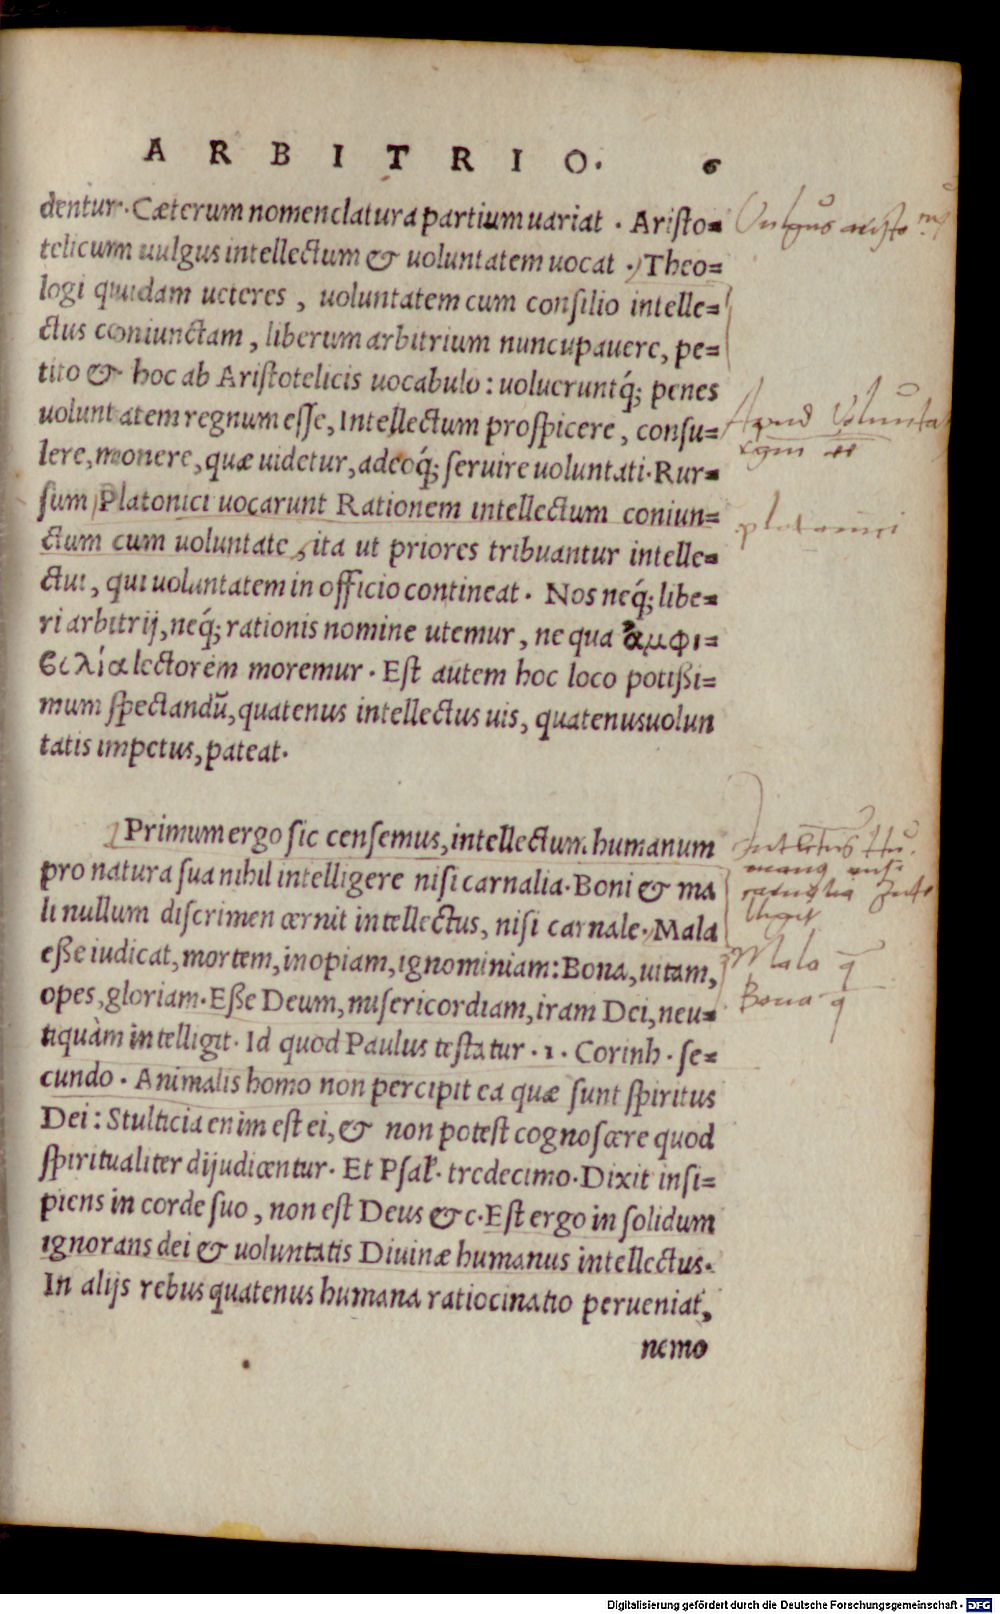 ARBITRIO. 6
dentur. Cæterum nomenclatura partium uariat. Aristo=
telicum uulgus intellectum & uoluntatem uocat. Theo=
logi quidam ueteres, uoluntatem cum consilio intelle=
ctus coniunctam, liberum arbitrium nuncupauere, pe=
tito & hoc ab Aristotelicis uocabulo: uolueruntq́; penes
uoluntatem regnum esse, Intellectum prospicere, consu=
lere, monere, quæ uidetur, adeoq́; seruire uoluntati. Rur=
sum Platonici uocarunt Rationem intellectum coniun=
ctum cum uoluntate, ita ut priores tribuantur intelle=
ctui, qui uoluntatem in officio contineat. Nos neq́; libe=
ri arbitrij, neq́; rationis nomine utemur, ne qua ἀμφι=
βολία lectorem moremur. Est autem hoc loco potißi=
mum spectandũ, quatenus intellectus uis, quatenusuolun
tatis impetus, pateat.
Primum ergo sic censemus, intellectum humanum
pro natura sua nihil intelligere nisi carnalia. Boni & ma
li nullum discrimen cernit intellectus, nisi carnale. Mala
eße iudicat, mortem, inopiam, ignominiam: Bona, uitam,
opes, gloriam. Eße Deum, misericordiam, iram Dei, neu=
tiquàm intelligit. Id quod Paulus testatur. 1. Corinh. se=
cundo. Animalis homo non percipit ea quæ sunt spiritus
Dei: Stulticia enim est ei, & non potest cognoscere quod
spiritualiter dijudicentur. Et Psal. tredecimo. Dixit insi=
piens in corde suo, non est Deus &c. Est ergo in solidum
ignorans dei & uoluntatis Diuinæ humanus intellectus.
In alijs rebus quatenus humana ratiocinatio perueniat,
nemo
Vulgus aristo
Apud Volunta
platonici
Mala q̄
Bona q̄
Digitalisierung gefördert durch die Deutsche Forschungsgemeinschaft - DFG